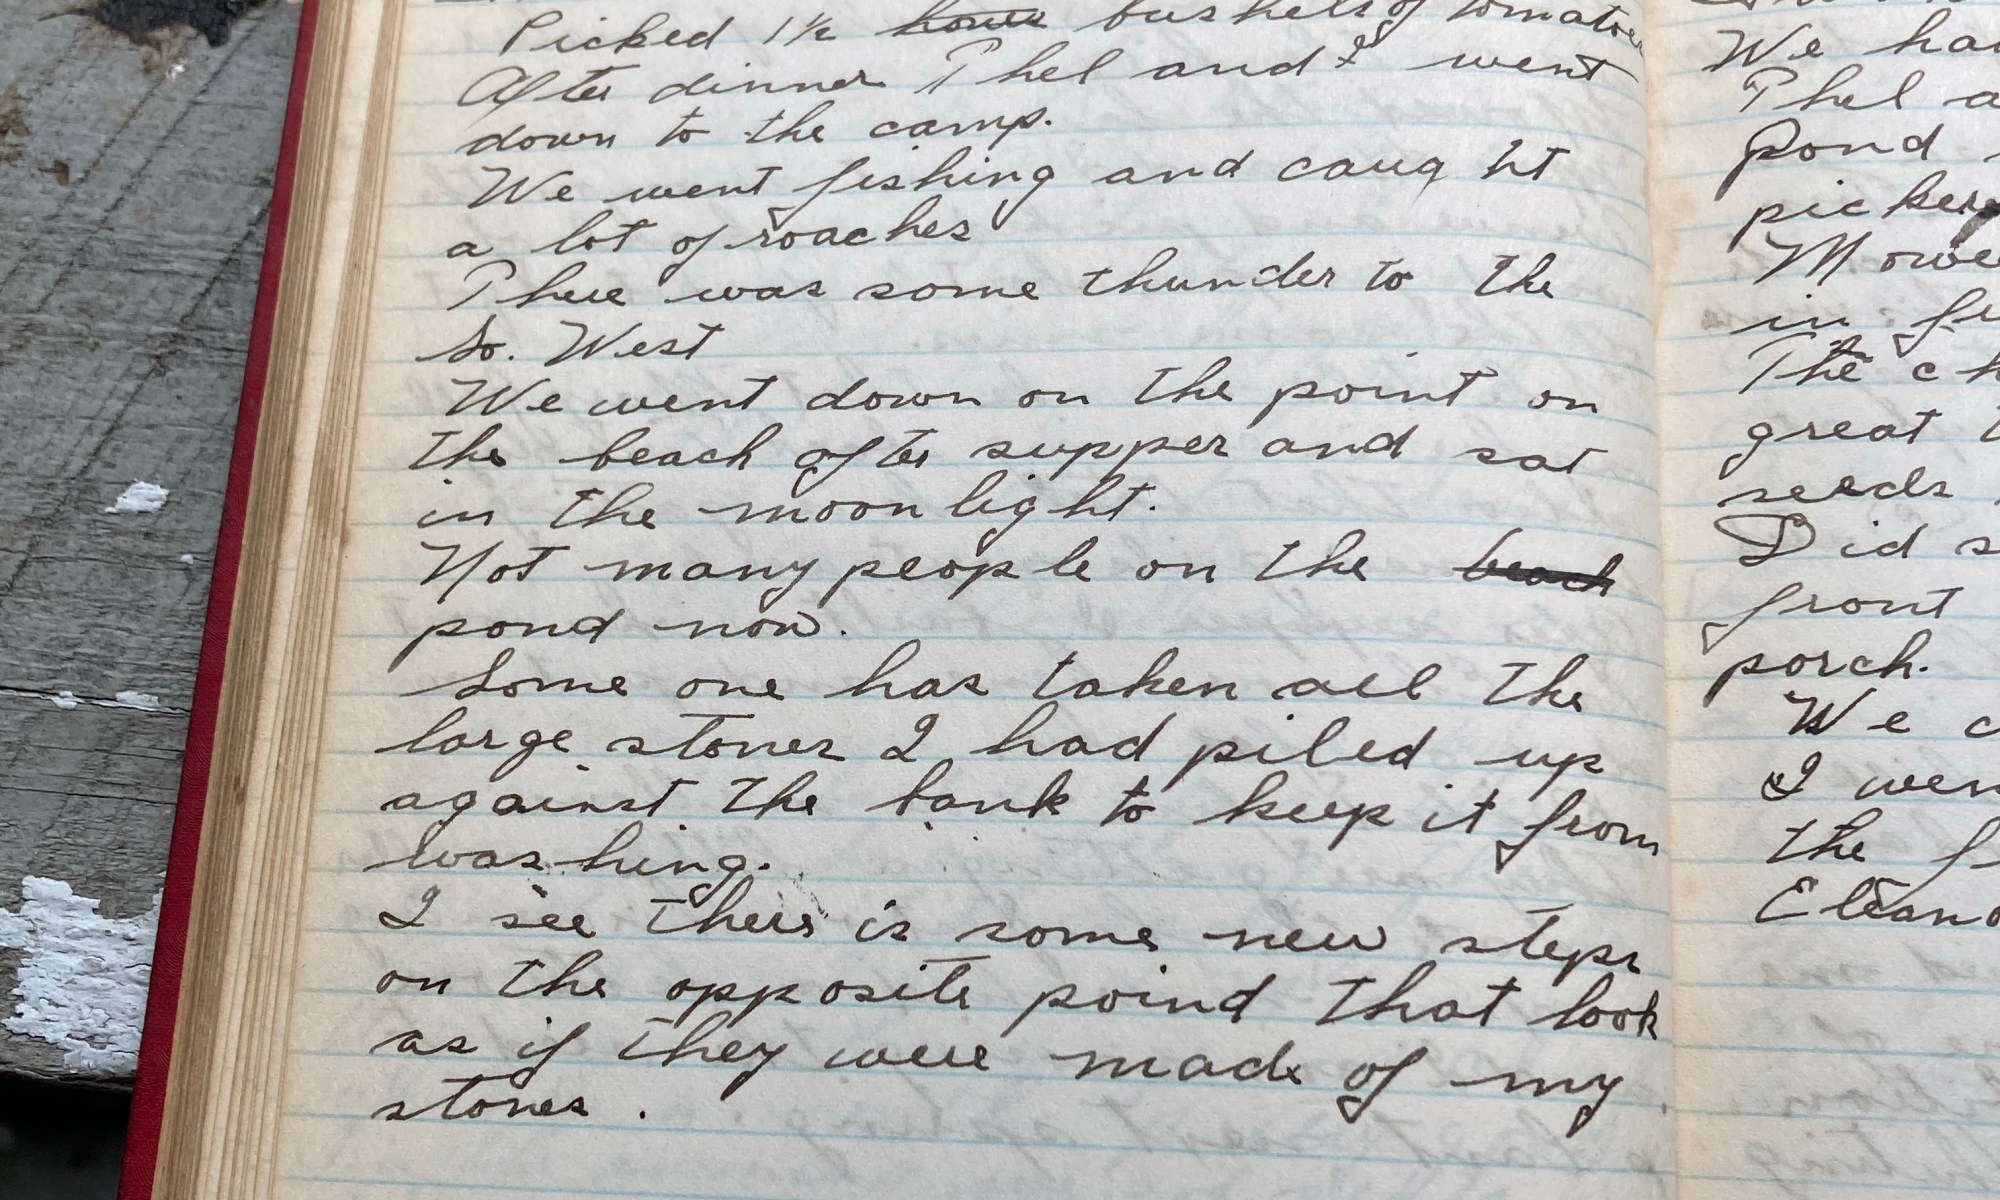 Picked 1½ hours bushels of tomatoes
After dinner Phel and I went
down to the camp.
We went fishing and caught
a lot of roaches
There was some thunder to the
So. West
We went down on the point on
the beach after supper and sat
in the moonlight.
Not many people on the beach
pond now.
Some one has taken all the
large stones I had piled up
against the bank to keep it from
washing.
I see there is some new steps
on the opposite poind that look
as if they were made of my
stones.
We ha
Phel a
Pond
picker
Mowe
in
The ch
great t
seeds
Did s
front
porch.
We c
I wen
the f
Eleano